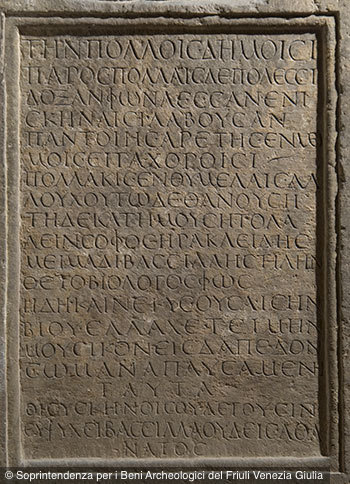 ΤΗΝ ΠΟΛΛΟΙΣ ΔΗΜΟΙΣΙ
ΠΑΡΟΣ ΠΟΛΛΑΙΣ ΔΕ ΠΟΛΕΣΣΙ
ΔΟΞΑΝ ΦΩΝΑΕΣΣΑΝ ΕΝΙ
ΣΚΗΝΑΙΣΙ ΛΑΒΟΥΣΑΝ
ΠΑΝΤΟΙΗΣ ΑΡΕΤΗΣ ΕΝ ΜΕΙ
ΜΟΙΣ ΕΙΤΑ ΧΟΡΟΙΣΙ
ΠΟΛΛΑΚΙΣ ΕΝ ΘΥΜΕΛΑΙΣ ΑΛ
Λ ΟΥΧ ΟΥΤΩ ΔΕ ΘΑΝΟΥΣΗ
ΤΗ ΔΕΚΑΤΗ ΜΟΥΣΗ ΤΟ ΛΑ
ΛΕΙΝ ΣΟΦΟΣ ΗΡΑΚΛΕΙΔΗΣ
ΜΕΙΜΑΔΙ ΒΑΣΣΙΛΛΗ ΣΤΗΛΗΝ
ΘΕΤΟ ΒΙΟΛΟΓΟΣ ΦΩΣ
Η ΔΗ ΚΑΙ ΝΕΚΥΣ ΟΥΣΑ ΙΣΗΝ
ΒΙΟΥ ΕΛΛΑΧΕ ΤΕΙΜΗΝ
ΜΟΥΣΙΚΟΝ ΕΙΣ ΔΑΠΕΔΟΝ
ΣΩΜ ΑΝΑΠΑΥΣΑΜΕΝΗ
ΤΑΥΤΑ
ΟΙ ΣΥΣΚΗΝΟΙ ΣΟΥ ΛΕΓΟΥΣΙΝ
ΕΥΨΥΧΕΙ ΒΑΣΣΙΛΛΑ ΟΥΔΕΙΣ ΑΘΑ
ΝΑΤΟΣ
© Soprintendenza per i Beni Archeologici del Friuli Venezia Giulia